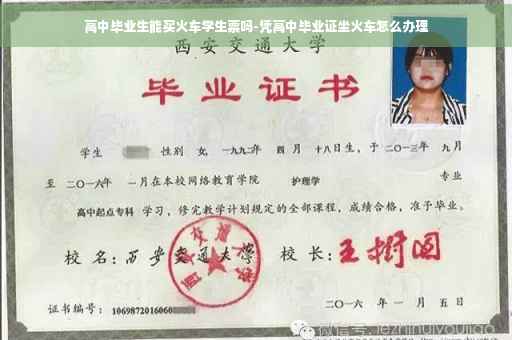 高中毕业生能买火车学生票吗-凭高中毕业证坐火车怎么办理
西安交通大学
毕业证书
学生 性别 女, 一九九二年 四月 十八日生, 于 二〇一三年 九月
至 二〇一六年 一月在本校网络教育学院 护理学 专业
高中起点专科 学习, 修完教学计划规定的全部课程, 成绩合格, 准予毕业。
校名: 西安交通大学 校长: 王树国
西安交通大学
证书编号: 1069872016060
二〇一六 年 一 月 五 日
微信号: jezhihuiyoujiao